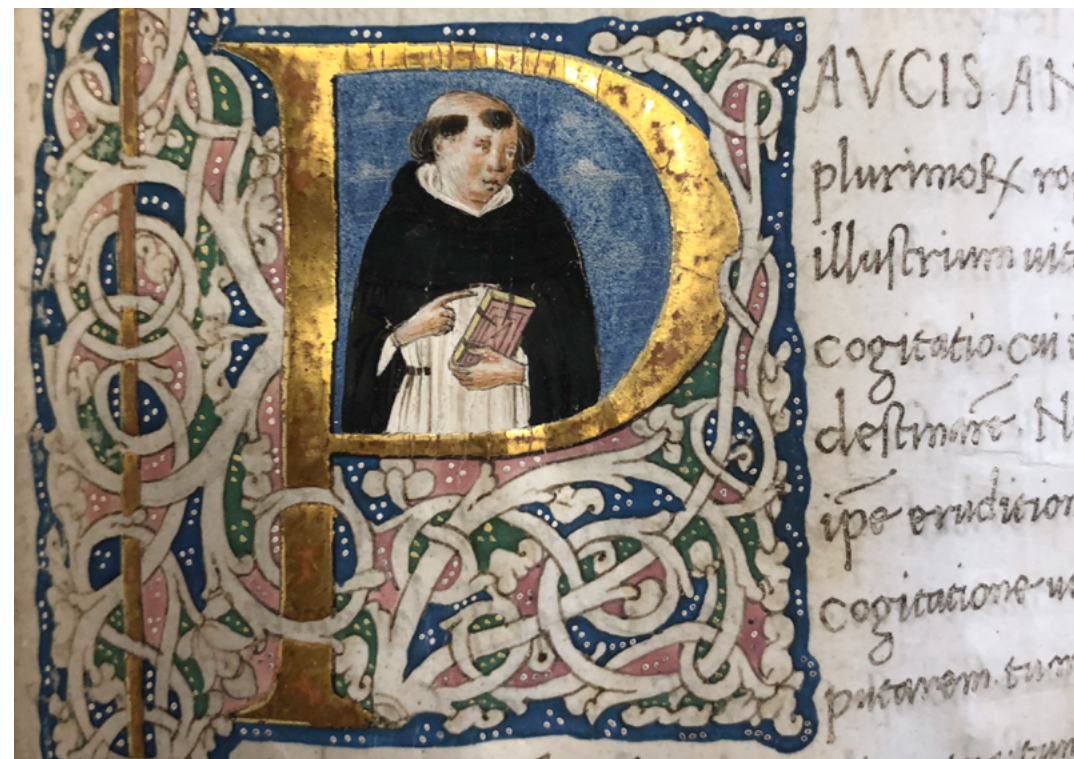 PAVCIS AN
plurimoꝝ ro
illuſtrium uit
cogitatio. cui
deſtinare. N
ip̄e erudition
cogitatione u
putarem. tum